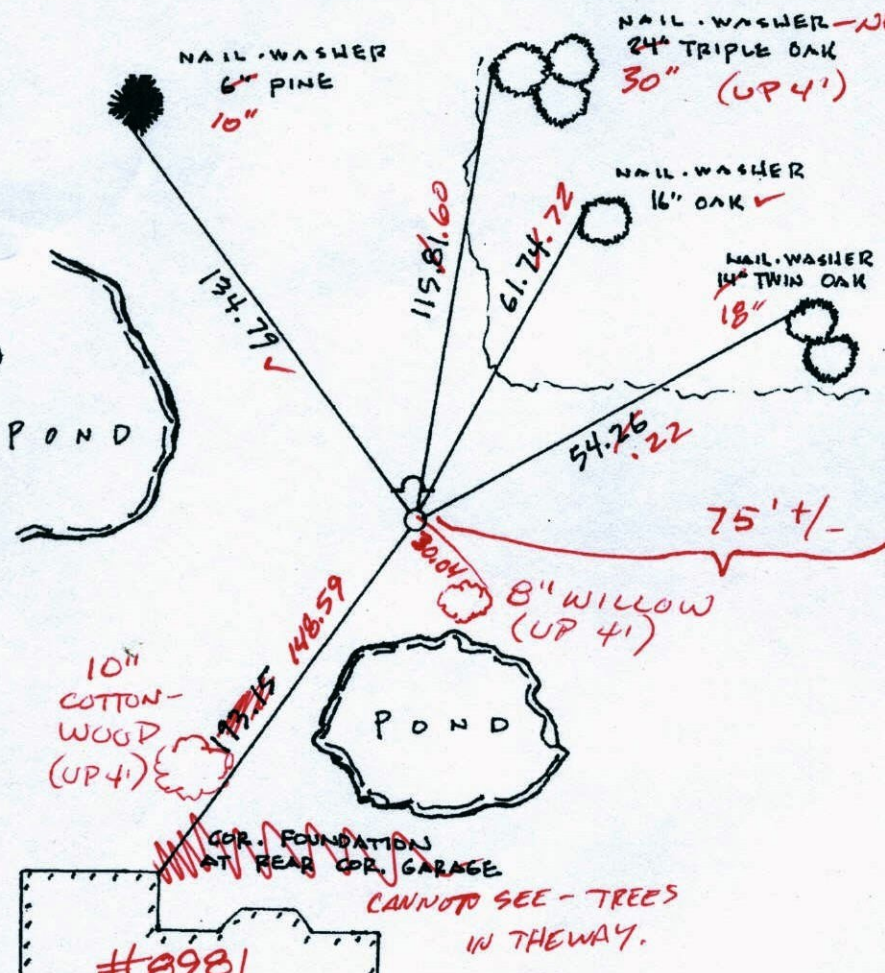 NAIL · WASHER
6" PINE
10"
NAIL · WASHER
24" TRIPLE OAK
30"
(UP 4')
NAIL · WASHER
16" OAK ✓
NAIL · WASHER
14" TWIN OAK
18"
134.79 ✓
115.81 .60
61.74 .72
54.26 .22
POND
75' +/-
30.04
8" WILLOW
(UP 4')
148.59
10"
COTTON-
WOOD
(UP 4')
POND
COR. FOUNDATION
AT REAR COR. GARAGE
CANNOT SEE - TREES
IN THE WAY.
#8981